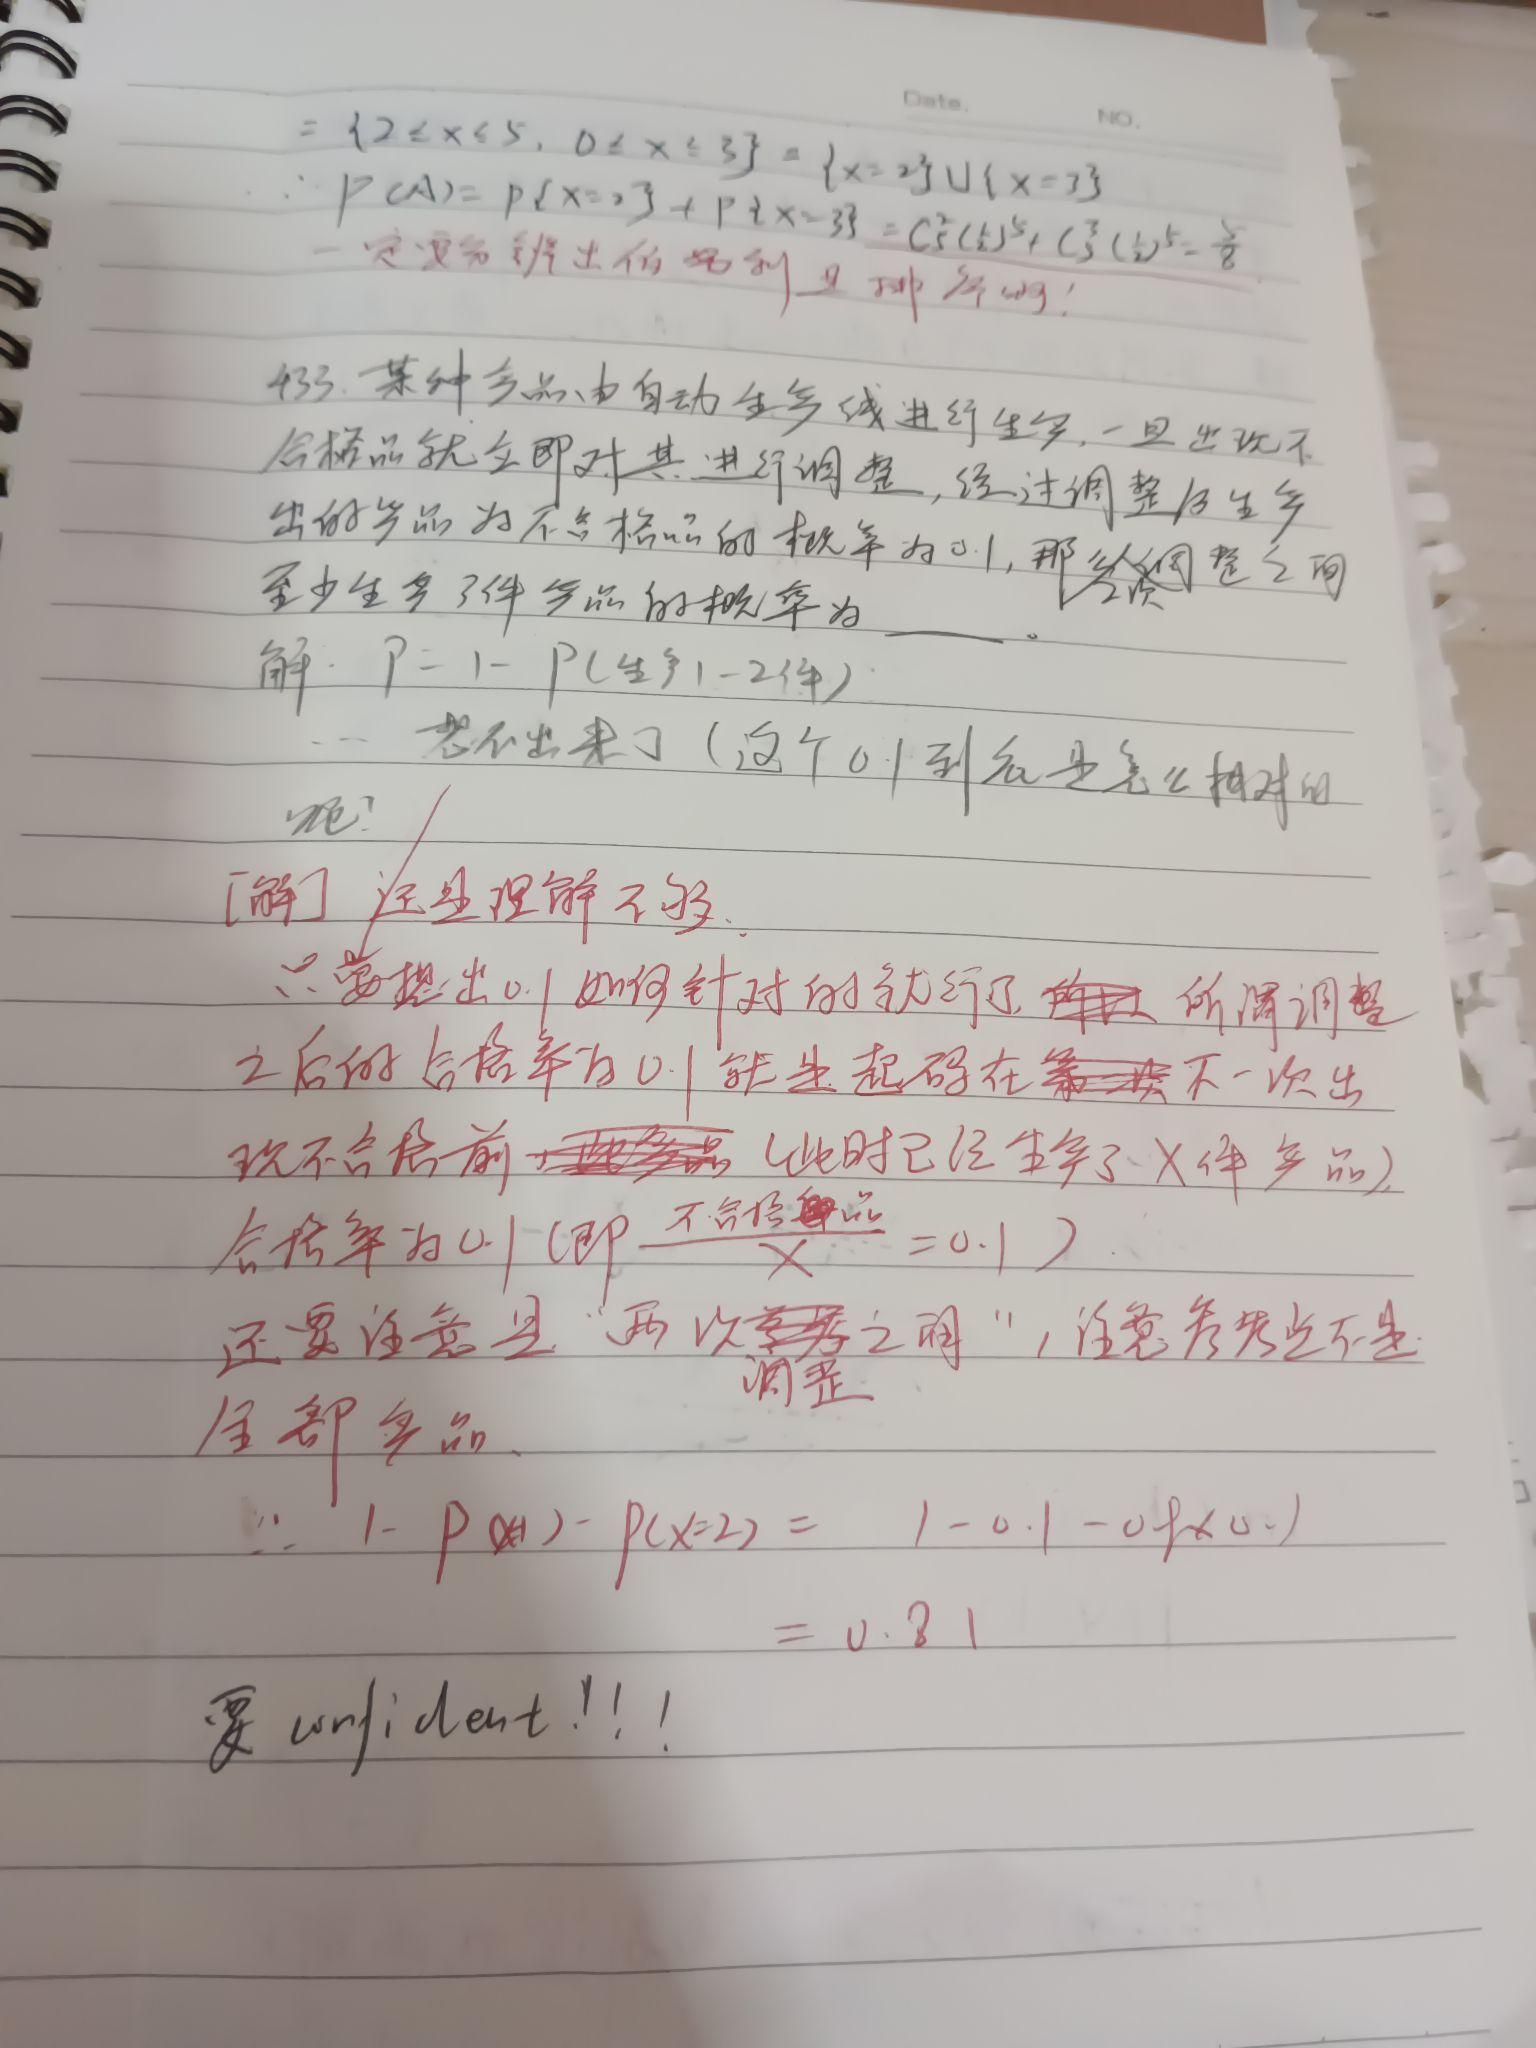 Date.
NO.
= {2≤x≤5, 0≤x≤3} = {x=2}∪{x=3}
∴ P(A)=P{x=2}+P{x=3}=C₅²(½)⁵+C₅³(½)⁵=5/8
一定要分辨出伯努利且排斥的!
433. 某种产品由自动生产线进行生产,一旦出现不
合格品就立即对其进行调整,经过调整后生产
出的产品为不合格品的概率为0.1,那么两次调整之间
至少生产3件产品的概率为____。
解: P=1-P(生产1-2件)
… 想不出来了(这个0.1到底是怎么相对的
呢?
[解] 还是理解不够.
只要想出0.1如何针对的就行了, 所谓调整
之后的合格率为0.1就是起码在 下一次出
现不合格前, (此时已经生产了X件产品),
合格率为0.1(即 不合格品/X =0.1)
还要注意是“两次调整之间”,注意考察点不是
全部产品、
∴ 1-P()-P(X=2)= 1-0.1-0.9×0.1
=0.81
要confident!!!